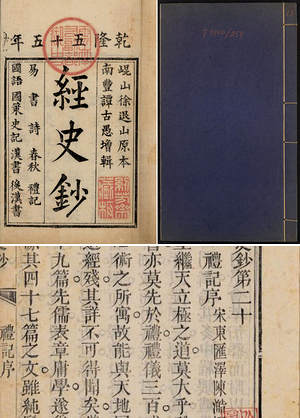 乾隆五十五年
崐山徐退山原本
南豐譚古愚增輯
經史鈔
易 書 詩 春秋 禮記
國語 國策 史記 漢書 後漢書
史鈔第二十
禮記序
宋東匯澤陳澔
繼天立極之道莫大乎
亦莫先於禮禮儀三百
術之所寓故能與天地
經殘其詳不可得聞矣
九篇先儒表章庸學遂
其四十七篇之文雖純
禮記序